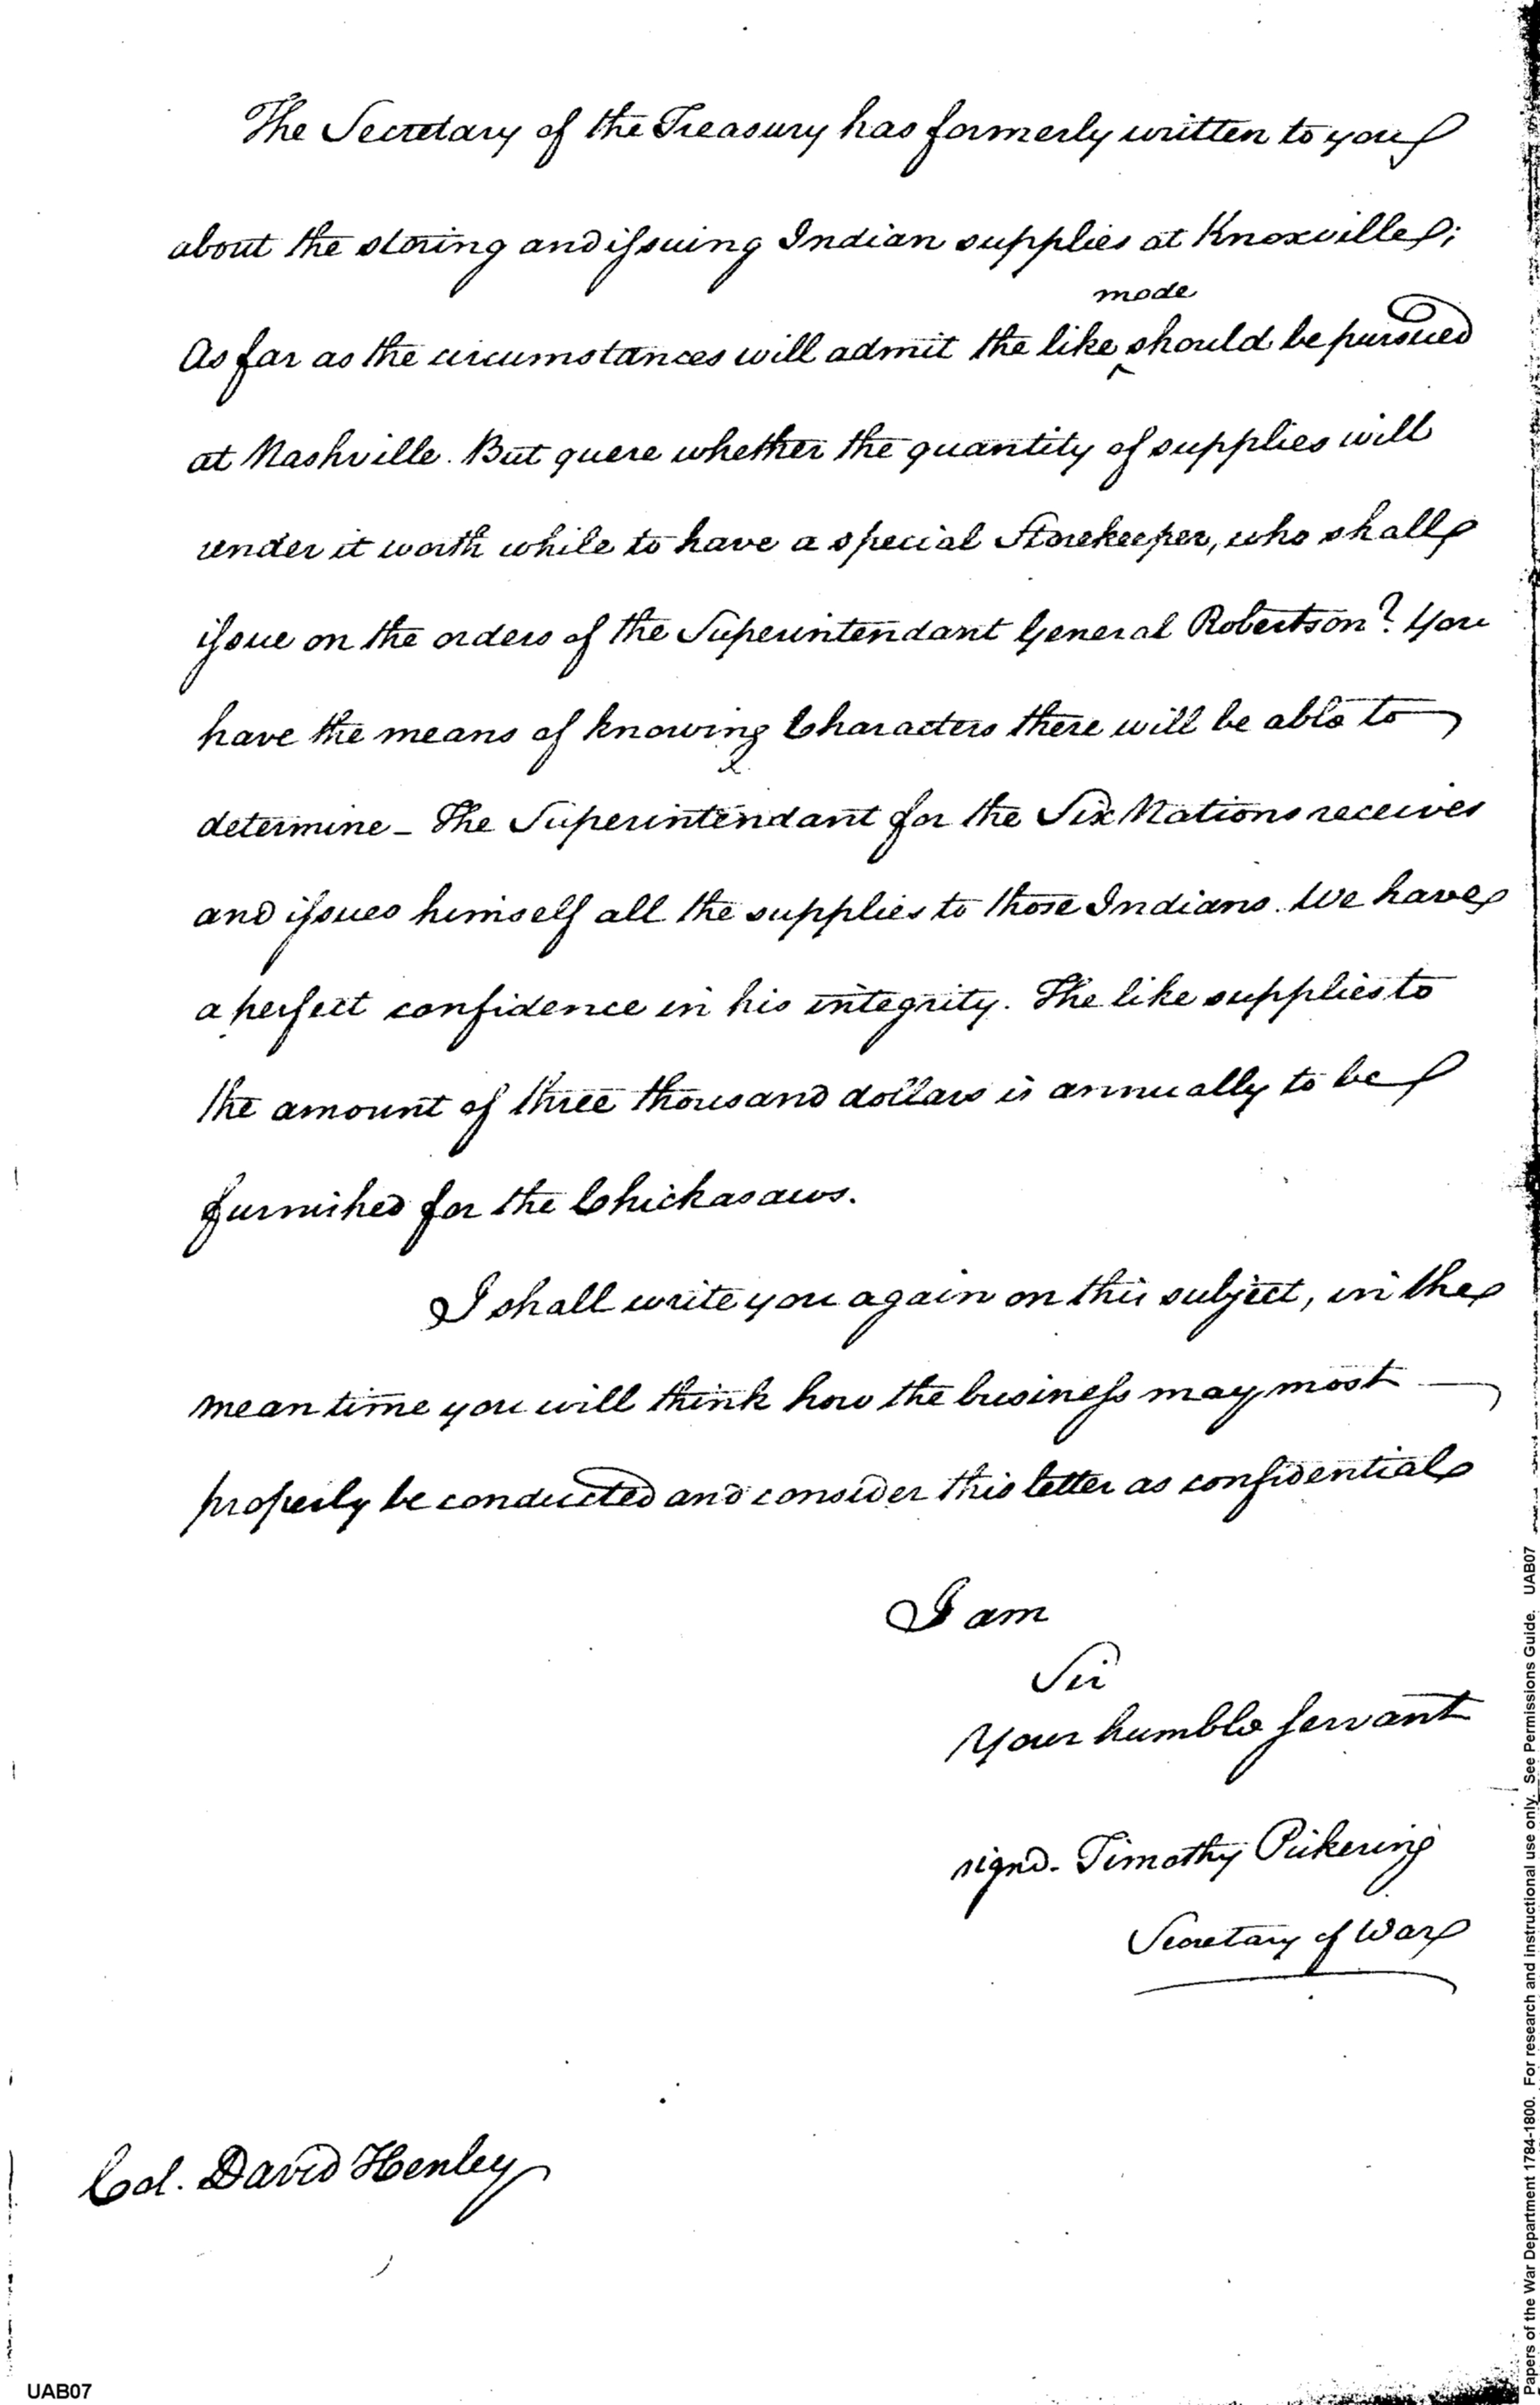 The Secretary of the Treasury has formerly written to you
about the storing and issuing Indian supplies at Knoxville;
mode
As far as the circumstances will admit the like ‸ should be pursued
at Nashville. But quere whether the quantity of supplies will
render it worth while to have a special Storekeeper, who shall
issue on the orders of the Superintendant General Robertson? You
have the means of knowing Characters there will be able to
&
determine - The Superintendant for the Six Nations receives
and issues himself all the supplies to those Indians. We have
a perfect confidence in his integrity. The like supplies to
the amount of three thousand dollars is annually to be
furnished for the Chickasaws.
I shall write you again on this subject, in the
mean time you will think how the business may most
properly be conducted and consider this letter as confidential
I am
Sir
Your humble servant
signd. Timothy Pickering
Secretary of War
Col. David Henley
UAB07
Papers of the War Department 1784-1800. For research and instructional use only. See Permissions Guide. UAB07